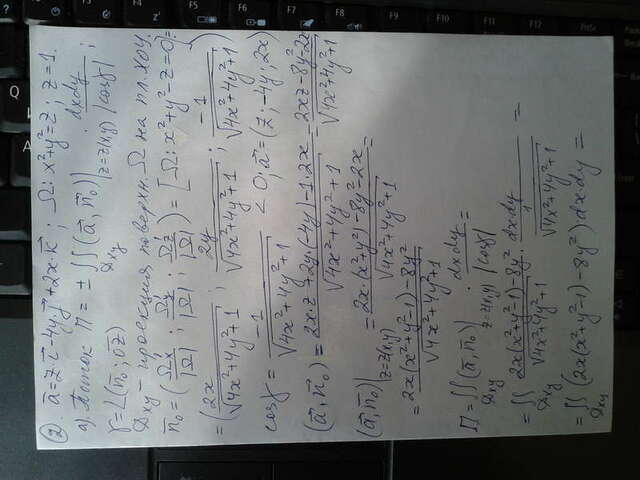 ② ā = z ī - 4y j̄ + 2x·k̄ ; Ω: x²+y²=z ; z=1.
а) Поток П = ± ∬_{Dxy} (ā, n̄₀)|_{z=z(x,y)} · dxdy/|cosγ| ;
γ = ∠(n̄₀; OZ)
Dxy - проекция поверхн. Ω на пл. xoy.
n̄₀ = (Ω'x/|Ω|; Ω'y/|Ω|; Ω'z/|Ω|) = [Ω: x²+y²-z=0] =
= (2x/√(4x²+4y²+1); 2y/√(4x²+4y²+1); -1/√(4x²+4y²+1))
cosγ = -1/√(4x²+4y²+1) < 0; ā = (z; -4y; 2x)
(ā, n̄₀) = (2x·z + 2y·(-4y) - 1·2x)/√(4x²+4y²+1) = (2xz - 8y² - 2x)/√(4x²+4y²+1)
(ā, n̄₀)|_{z=z(x,y)} = (2x·(x²+y²) - 8y² - 2x)/√(4x²+4y²+1) =
= (2x(x²+y²-1) - 8y²)/√(4x²+4y²+1)
П = ∬_{Dxy} (ā, n̄₀)|_{z=z(x,y)} · dxdy/|cosγ| =
= ∬_{Dxy} (2x(x²+y²-1) - 8y²)/√(4x²+4y²+1) · dxdy/(1/√(4x²+4y²+1)) =
= ∬_{Dxy} (2x(x²+y²-1) - 8y²) dxdy =